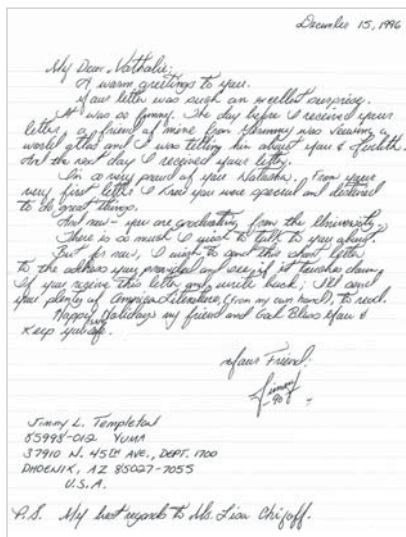 December 15, 1996
My Dear Nathalie:
A warm greetings to you.
Your letter was such an excellent surprise.
It was so funny. The day before I received your
letter, a friend of mine from Germany was viewing a
world atlas and I was telling him about you &
And the next day I received your letter.
I'm very proud of you Natasha. From your
very first letter I knew you were special and destined
to do great things.
And now - you are graduating from the University.
There is so much I wish to talk to you about.
But for now, I wish to send this short letter
to the address you provided and see if it touches down.
If you receive this letter and write back, I'll send
you plenty of American Literature, (from my own hand), to read.
Happy Holidays my friend and God Bless You &
Keep you safe.
Your Friend:
Jimmy
Jimmy L. Templeton
85998-012 YUMA
37910 N. 45TH AVE., DEPT. 1700
PHOENIX, AZ 85027-7055
U.S.A.
P.S. My best regards to Ms. Lisa Chizoff.